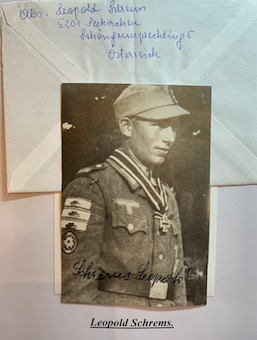 Abs. Leopold Schrems
5201 Seekirchen
Schöngumprechting 5
Österreich
Schrems Leopold
Leopold Schrems.